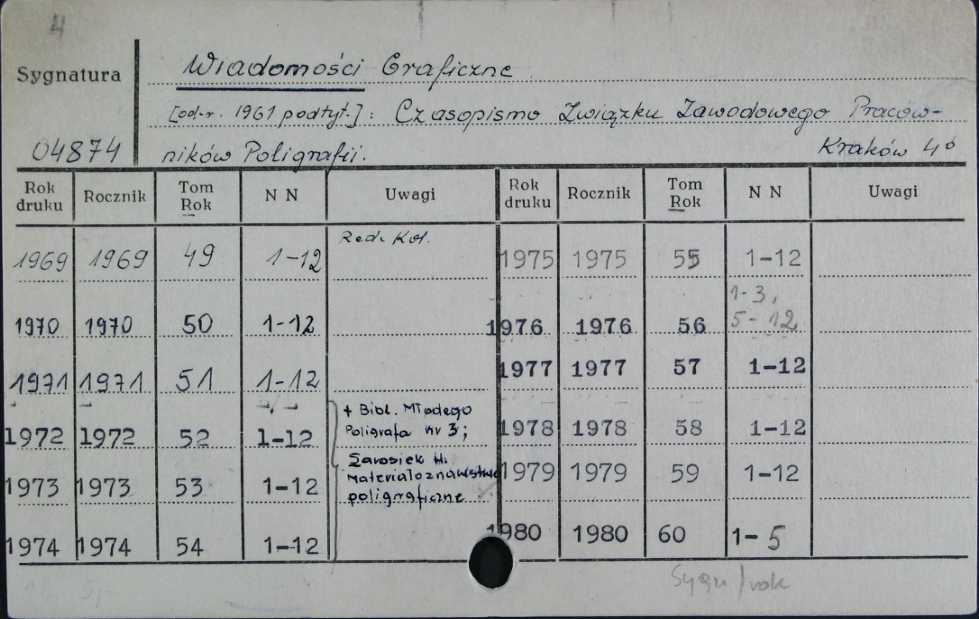 4
Sygnatura
Wiadomości Graficzne
[od r. 1961 podtyt.]: Czasopismo Związku Zawodowego Pracow-
04874 ników Poligrafii. Kraków 4°
Rok druku Rocznik Tom Rok N N Uwagi Rok druku Rocznik Tom Rok N N Uwagi
1969 1969 49 1-12 Red. Kol. 1975 1975 55 1-12
1970 1970 50 1-12 1976 1976 56 1-3, 5-12
1971 1971 51 1-12 1977 1977 57 1-12
1972 1972 52 1-12 + Bibl. Młodego Poligrafa nr 3; 1978 1978 58 1-12
1973 1973 53 1-12 Sarosiek H. Materiałoznawstwo poligraficzne 1979 1979 59 1-12
1974 1974 54 1-12 1980 1980 60 1-5
Sygn/rok